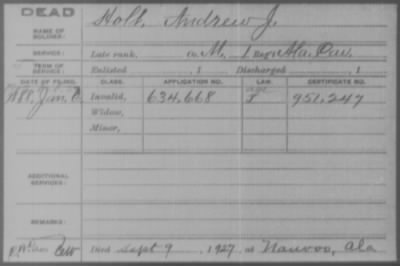 DEAD
NAME OF SOLDIER: Holt, Andrew J.
SERVICE: Late rank, Co. M, 1 Reg't Ala. Cav.
TERM OF SERVICE: Enlisted , 1 Discharged , 1
DATE OF FILING. CLASS. APPLICATION NO. LAW. CERTIFICATE NO.
Invalid, 634.668 951.247
Widow,
Minor,
ADDITIONAL SERVICES:
REMARKS:
Died Sept 9, 1927, at Nauvoo, Ala